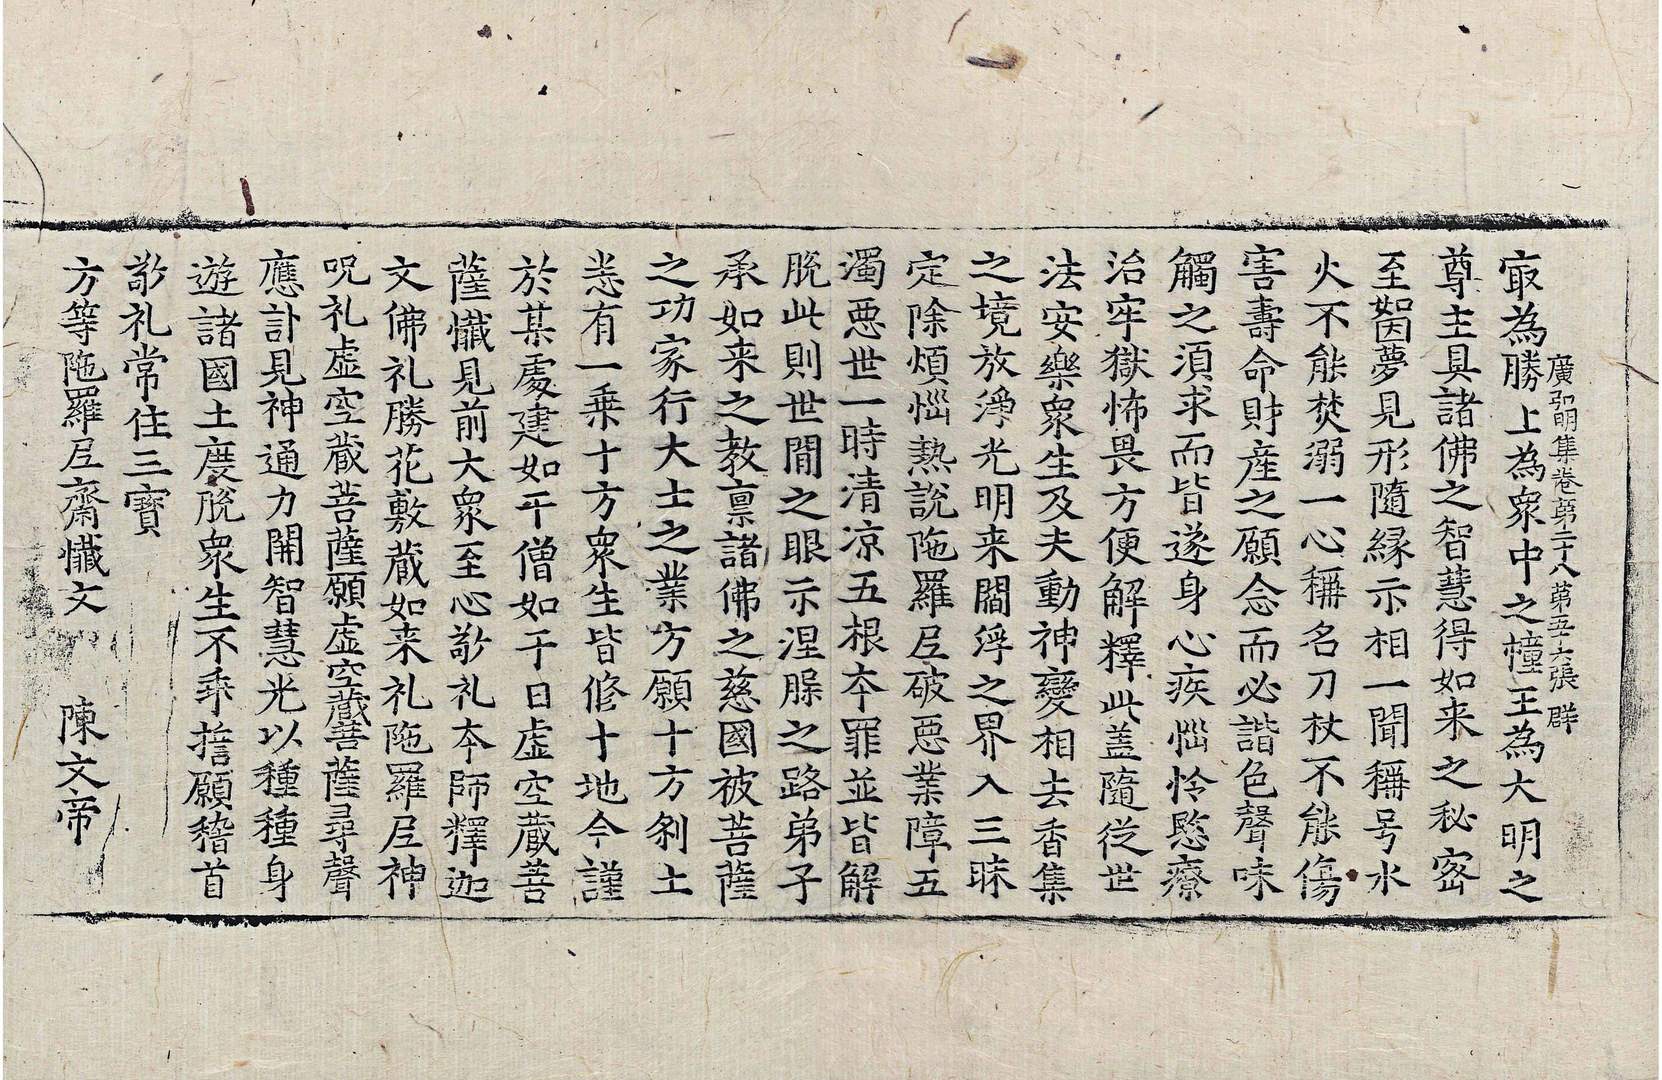 廣弘明集卷第二十八第五十六張 群
㝡為勝上為衆中之幢王為大明之
尊主具諸佛之智慧得如来之秘宻
至㘣夢見形隨縁示相一聞稱号水
火不能焚溺一心稱名刀杖不能傷
害壽命財産之願念而必諧色聲味
觸之須求而皆遂身心疾惱怜愍療
治牢獄怖畏方便解釋此盖隨従世
法安樂衆生及夫動神變相去香集
之境放淨光明来閻浮之界入三昧
定除煩惱熱説陁羅𡰱破惡業障五
濁惡世一時清凉五根夲罪並皆解
脱此則世間之眼示涅槃之路弟子
承如来之教禀諸佛之慈國被菩薩
之功家行大士之業方願十方刹土
悉有一乗十方衆生皆修十地今謹
於某處建如干僧如干日虛空蔵菩
薩懺見前大衆至心敬礼夲師釋迦
文佛礼勝花敷蔵如来礼陁羅𡰱神
呪礼虛空蔵菩薩願虛空蔵菩薩尋聲
應訃見神通力開智慧光以種種身
遊諸國土度脱衆生不乖誓願稽首
敬礼常住三寳
方等陁羅𡰱齋懺文 陳文帝